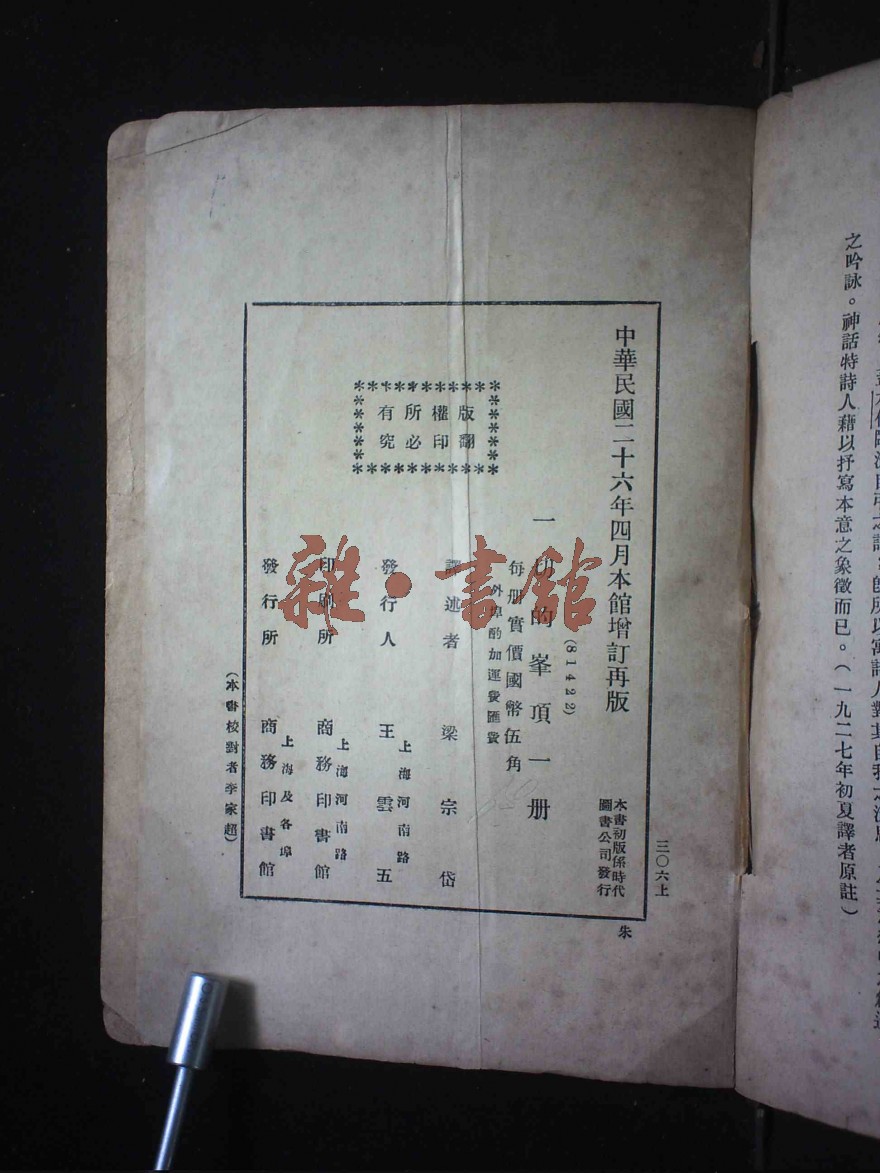 之吟詠。神話特詩人藉以抒寫本意之象徵而已。（一九二七年初夏譯者原註）
三〇六上
中華民國二十六年四月本館增訂再版
本書初版係時代
圖書公司發行
朱
(81422)
一切的峯頂一册
每册實價國幣伍角
外埠酌加運費匯費
版權所有
翻印必究
譯述者 梁宗岱
發行人 王雲五
上海河南路
印刷所 商務印書館
上海河南路
發行所 商務印書館
上海及各埠
（本書校對者李家超）
雜·書館